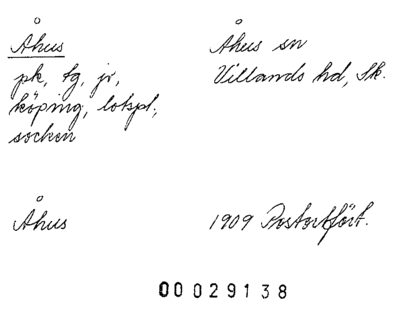 Åhus
Åhus sn
pk, tg, jr,
Villands hd, Sk.
köping, lotspl.,
socken
Åhus
1909 Postortfört.
00029138